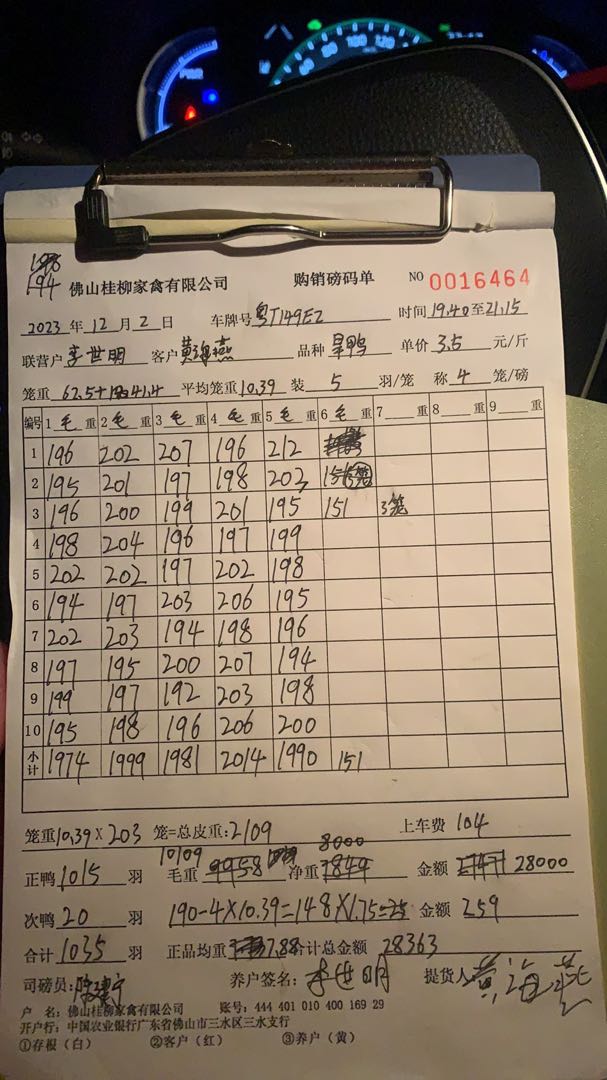 194
佛山桂柳家禽有限公司 购销磅码单 NO 0016464
2023年12月2日 车牌号粤T149EZ 时间19.40至21.15
联营户李世明 客户黄海燕 品种旱鸭 单价3.5元/斤
笼重 62.5+ 41.4 平均笼重10.39 装 5 羽/笼 称 4 笼/磅
编号 1毛重 2毛重 3毛重 4毛重 5毛重 6毛重 7 重 8 重 9 重
1 196 202 207 196 212
2 195 201 197 198 203
3 196 200 199 201 195 151 3笼
4 198 204 196 197 199
5 202 202 197 202 198
6 194 197 203 206 195
7 202 203 194 198 196
8 197 195 200 207 194
9 199 197 192 203 198
10 195 198 196 206 200
小计 1974 1999 1981 2014 1990 151
笼重10.39×203 笼=总皮重:2109 上车费 104
正鸭1015羽 毛重 10109 净重 8000 金额 28000
次鸭20羽 190-4×10.39=148×1.75= 金额 259
合计1035羽 正品均重 7.88 合计总金额 28363
司磅员: 养户签名:李世明 提货人黄海燕
户 名:佛山桂柳家禽有限公司 账号:444 401 010 400 169 29
开户行:中国农业银行广东省佛山市三水区三水支行
①存根(白) ②客户(红) ③养户(黄)